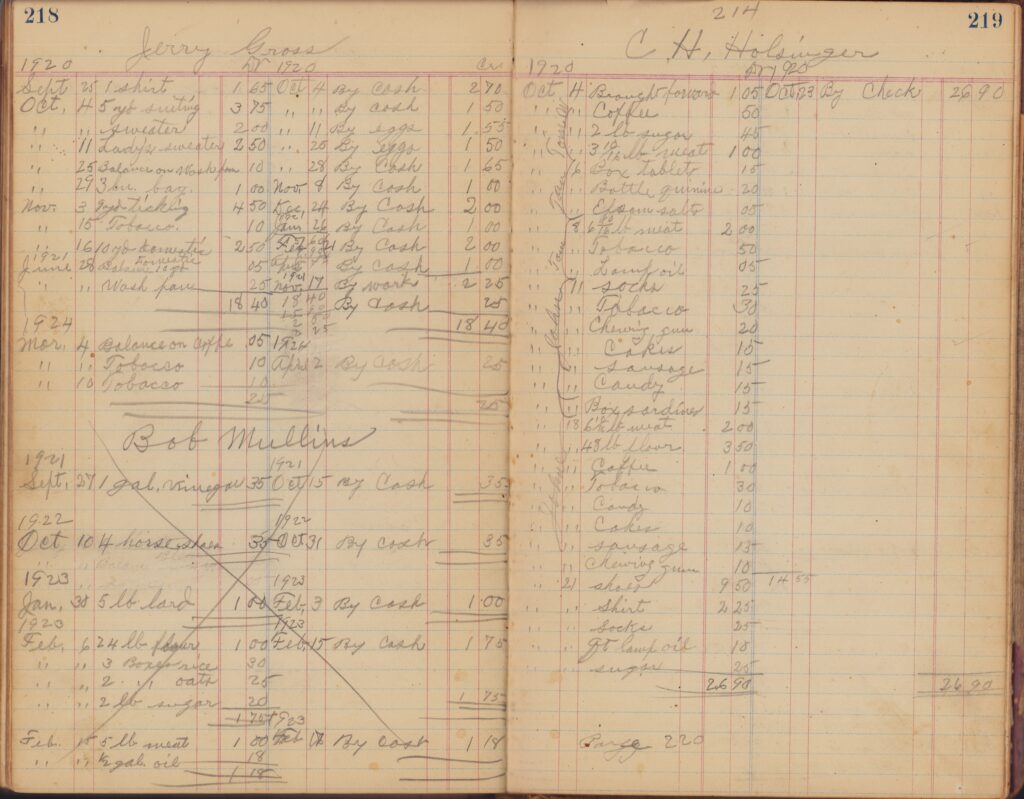 218
Jerry Gross
1920 Dr 1920 Cr
Sept 25 1 shirt 1 65 Oct 4 By Cash 2 70
Oct. 4 5 yd suiting 3 75 " " By cash 1 50
" " sweater 2 00 " 11 By eggs 1.55
" 11 Lady's sweater 2 50 " 25 By eggs 1 50
" 25 Balance on Wash pan 10 " 28 By Cash 1 65
" 29 3 bu. bag. 1 00 Nov 8 By Cash 1 00
Nov 3 9 yd ticking 4 50 Dec 24 By Cash 2 00
" 15 Tobacco. 10 Jan 26 By Cash 1 00
" 16 10 yd domestic 2 50 Feb By Cash 2 00
1921
June 28 Balance 10 yd domestic 05 By Cash 1.00
" " Wash pan 25 Nov 17 By work 2 25
18 40 By Cash 25
18 40
1924
Mar. 4 Balance on Coffe 05 1924
" " Tobacco 10 Apr 2 By Cash 25
" 10 Tobacco 10
25 25
Bob Mullins
1921 1921
Sept. 27 1 gal. vinegar 35 Oct 15 By Cash 35
1922 1922
Oct 10 4 horse shoes 35 Oct 31 By cash 35
1923 1923
Jan, 30 5 lb lard 1 00 Feb. 3 By Cash 1.00
1923 1923
Feb. 6 24 lb flour 1 00 Feb, 15 By Cash 1 75
" " 3 Boxes rice 30
" " 2 " oats 25
" " 2 lb sugar 20 1 75
1 75 1923
Feb. 15 5 lb meat 1 00 Feb 17 By Cash 1 18
" " 1/2 gal. oil 18
1 18
214
219
C. H. Holsinger
1920 Dr 1920
Oct, 4 Brought forward 1 05 Oct 23 By Check 26 90
" " Coffee 50
" " 2 lb sugar 45
" " meat 1 00
" 6 Box tablets 15
" " Bottle quinine 20
" " Epsom salts 05
" 8 meat 2 00
" " Tobacco 50
" " Lamp oil 05
" 11 socks 25
" " Tobacco 30
" " Chewing gum 20
" " Cakes 15
" " sausage 15
" " Candy 15
" " Box sardines 15
" 18 meat 2 00
" " 48 lb flour 3 50
" " Coffee 1 00
" " Tobacco 30
" " Candy 10
" " Cakes 10
" " sausage 15
" " Chewing gum 10
" 21 shoes 9 50 14 55
" " Shirt 2,25
" " Socks 25
" " qt lamp oil 10
" " sugar 25
26 90 26 90
Page 220